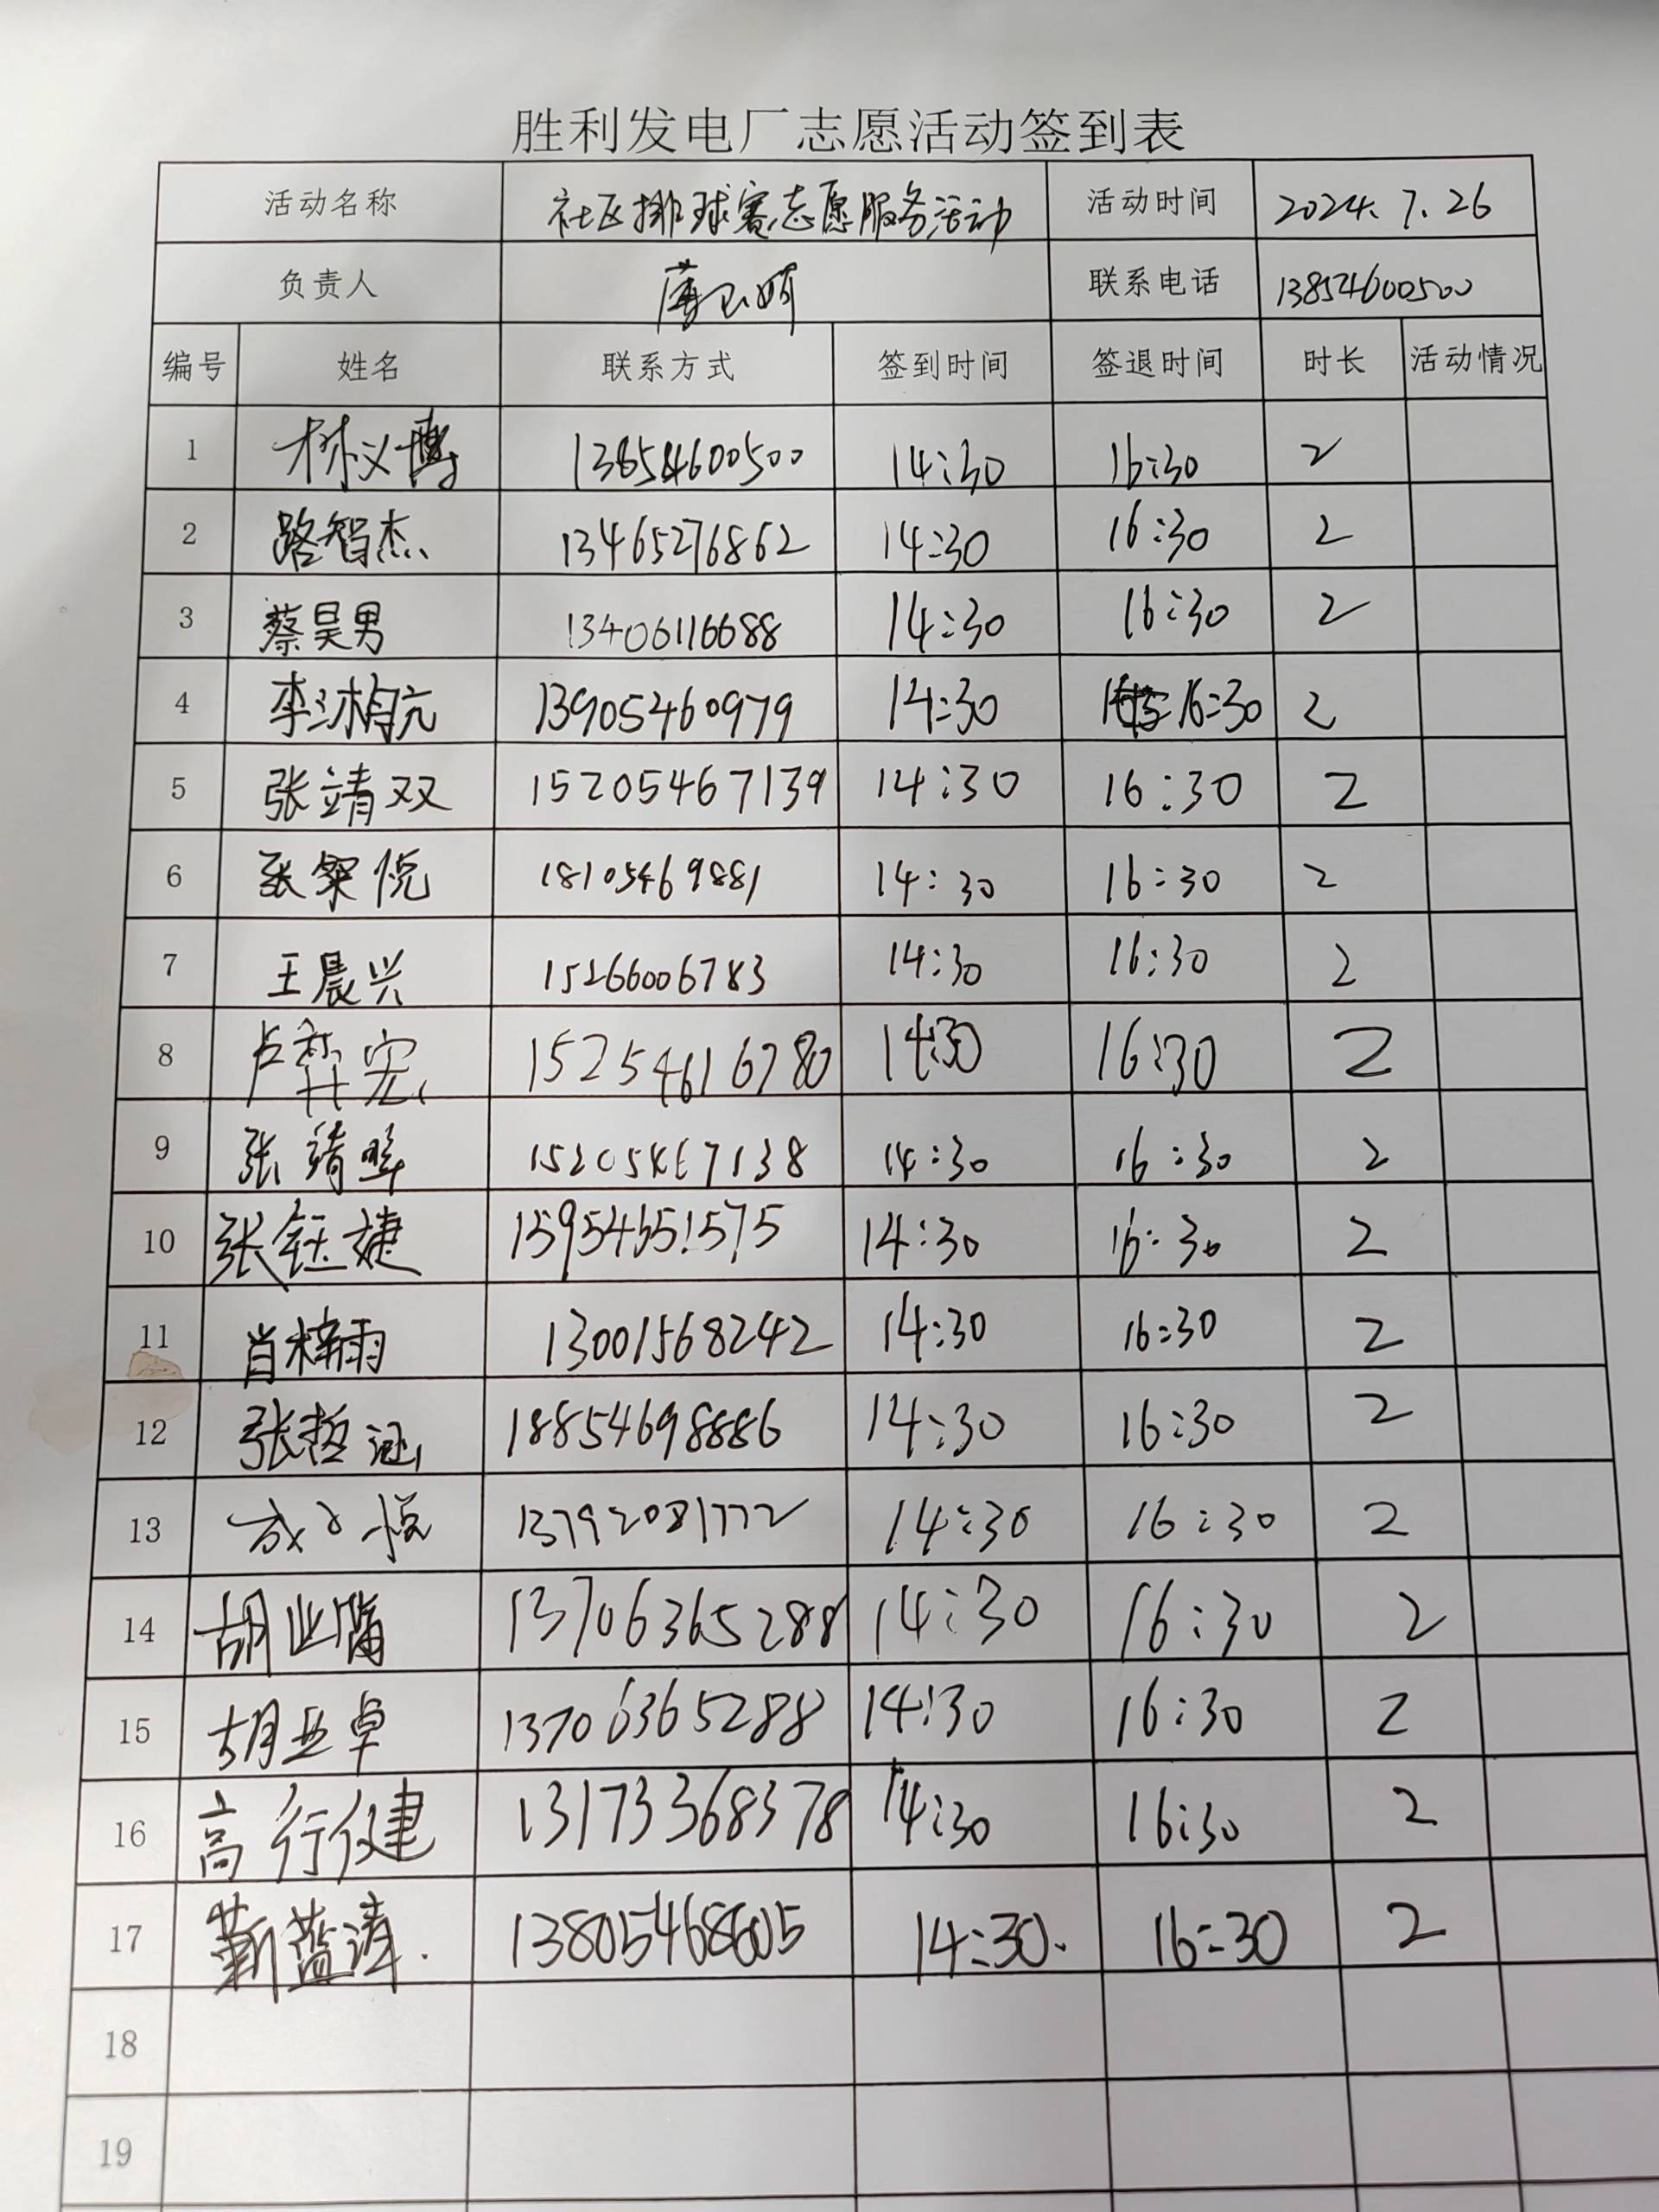 胜利发电厂志愿活动签到表
活动名称 社区排球赛志愿服务活动 活动时间 2024.7.26
负责人 联系电话 13854600500
编号 姓名 联系方式 签到时间 签退时间 时长 活动情况
1 林义博 13854600500 14:30 16:30 2
2 路智杰 13465276862 14:30 16:30 2
3 蔡昊男 13406116688 14:30 16:30 2
4 李沐航 13905460979 14:30 16:30 2
5 张靖双 15205467139 14:30 16:30 2
6 张粲悦 18105469881 14:30 16:30 2
7 王晨兴 15266006783 14:30 16:30 2
8 卢弈宏 15254616780 14:30 16:30 2
9 张靖晔 15205467138 14:30 16:30 2
10 张钰婕 15954651575 14:30 16:30 2
11 肖梓雨 13001568242 14:30 16:30 2
12 张哲涵 18854698886 14:30 16:30 2
13 13792081772 14:30 16:30 2
14 13706365288 14:30 16:30 2
15 胡亚卓 13706365288 14:30 16:30 2
16 高行健 13173368378 14:30 16:30 2
17 靳蓝涛. 13805468605 14:30. 16:30 2
18
19